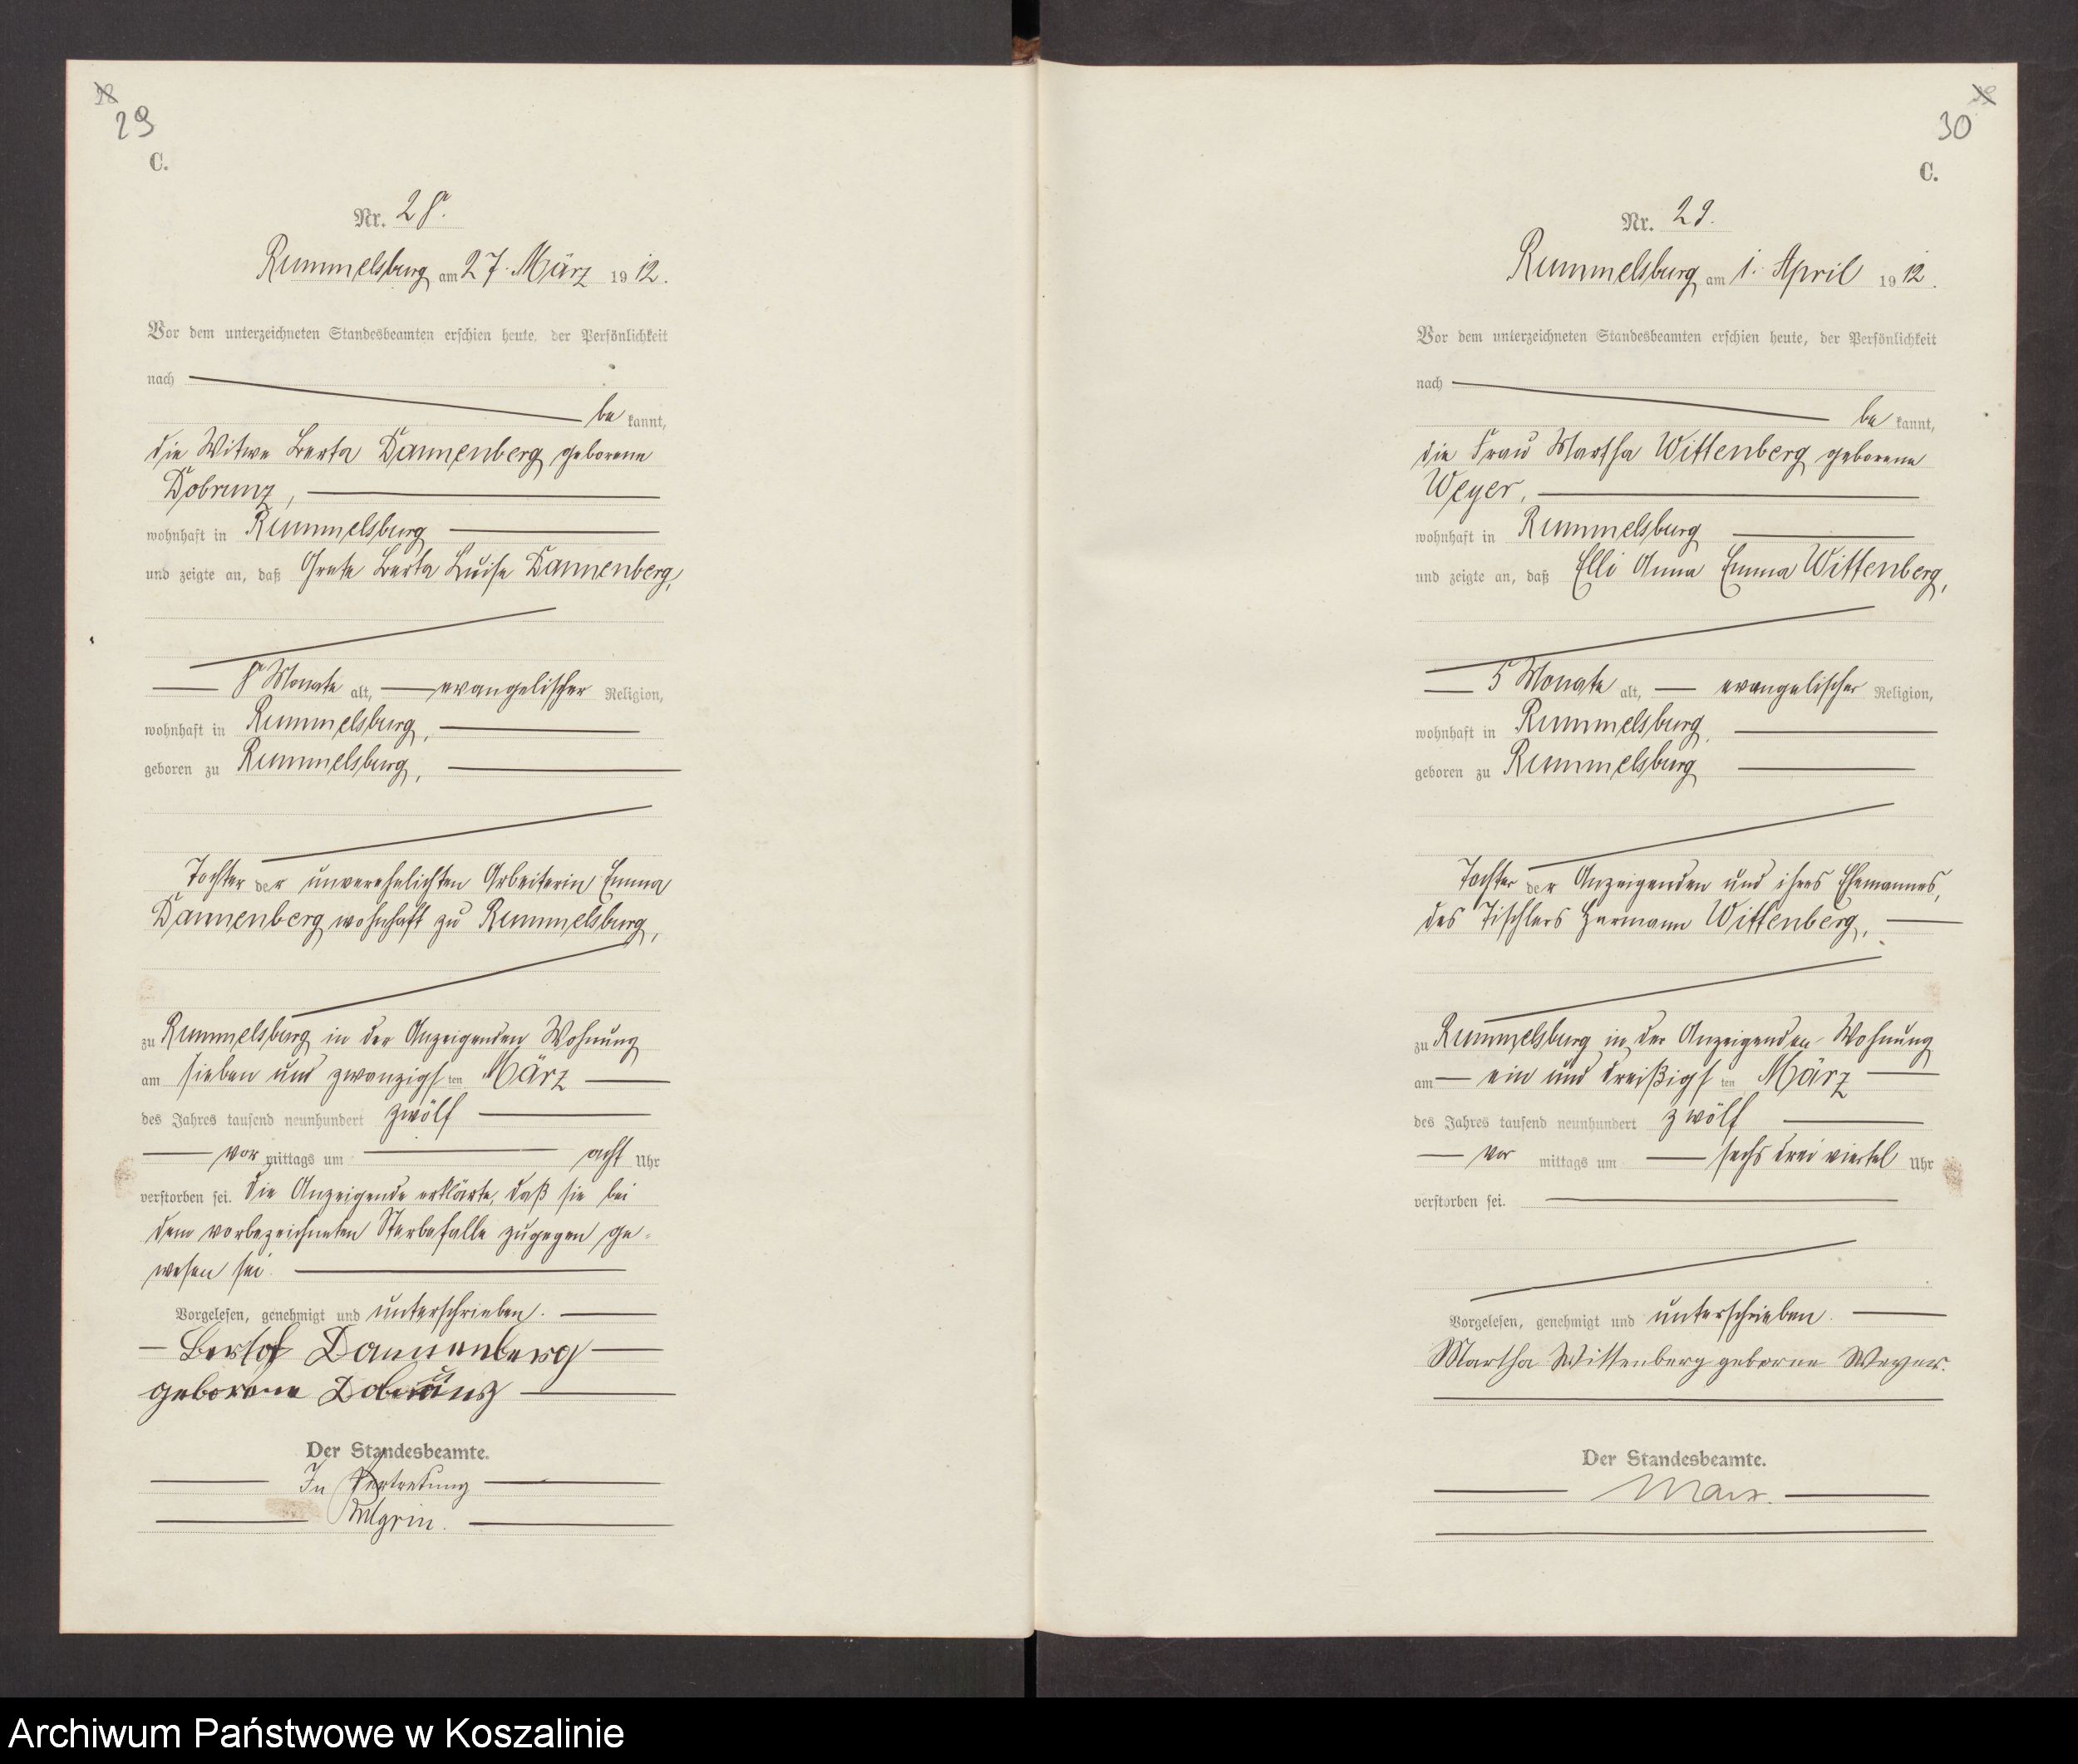 29
C.
Nr. 28.
Rummelsburg am 27. März 1912.
Vor dem unterzeichneten Standesbeamten erschien heute, der Persönlichkeit
nach
be kannt,
die Witwe Berta Dannenberg geborene
Dobrunz,
wohnhaft in Rummelsburg
und zeigte an, daß Grete Berta Luise Dannenberg,
8 Monate alt, evangelischer Religion,
wohnhaft in Rummelsburg,
geboren zu Rummelsburg,
Tochter der unverehelichten Arbeiterin Emma
Dannenberg wohnhaft zu Rummelsburg,
zu Rummelsburg in der Anzeigenden Wohnung
am sieben und zwanzigsten März
des Jahres tausend neunhundert zwölf
vor mittags um acht Uhr
verstorben sei. Die Anzeigende erklärte, daß sie bei
dem vorbezeichneten Sterbefalle zugegen ge-
wesen sei.
Vorgelesen, genehmigt und unterschrieben.
Dannenberg
geborene
Der Standesbeamte.
In Vertretung
30
C.
Nr. 29.
Rummelsburg am 1. April 1912.
Vor dem unterzeichneten Standesbeamten erschien heute, der Persönlichkeit
nach
be kannt,
die Frau Martha Wittenberg geborene
Weyer,
wohnhaft in Rummelsburg
und zeigte an, daß Elli Anna Emma Wittenberg,
5 Monate alt, evangelischer Religion,
wohnhaft in Rummelsburg,
geboren zu Rummelsburg
Tochter der Anzeigenden und ihres Ehemannes,
des Tischlers Hermann Wittenberg,
zu Rummelsburg in der Anzeigenden Wohnung
am ein und dreißigsten März
des Jahres tausend neunhundert zwölf
vor mittags um sechs drei viertel Uhr
verstorben sei.
Vorgelesen, genehmigt und unterschrieben.
Martha Wittenberg geborne Weyer.
Der Standesbeamte.
Archiwum Państwowe w Koszalinie